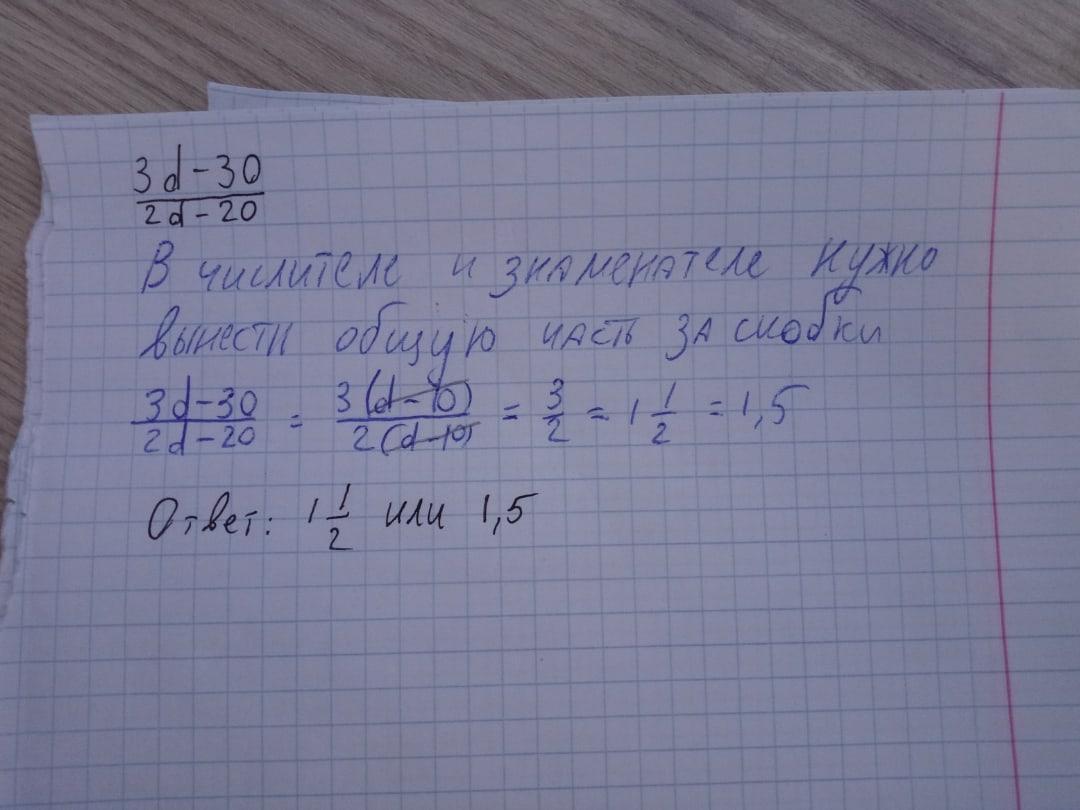 3d-30
2d-20
В числителе и знаменателе нужно
вынести общую часть за скобки
3d-30/2d-20 = 3(d-10)/2(d-10) = 3/2 = 1 1/2 = 1,5
Ответ: 1 1/2 или 1,5